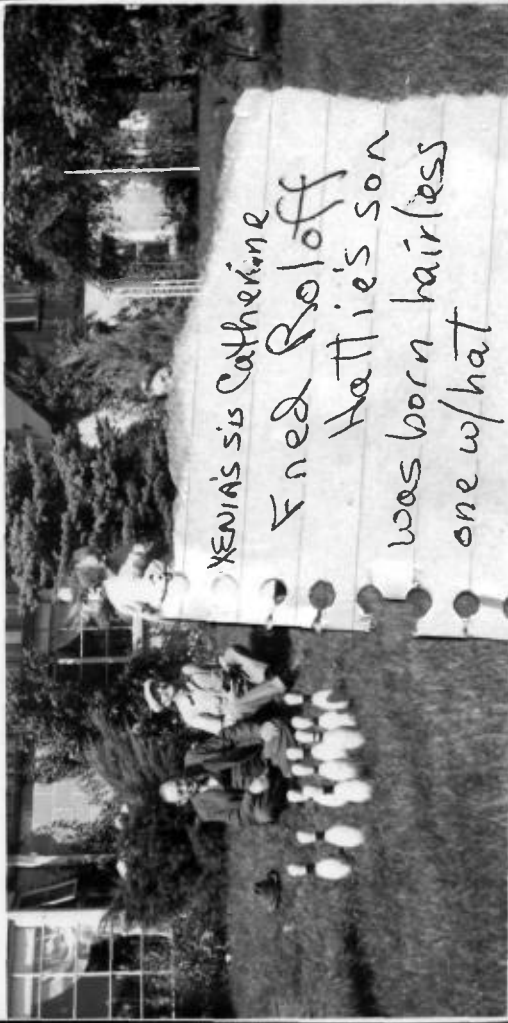 XENIA'S sis Catherine
Fred Roloff
Hattie's son
was born hairless
one w/hat